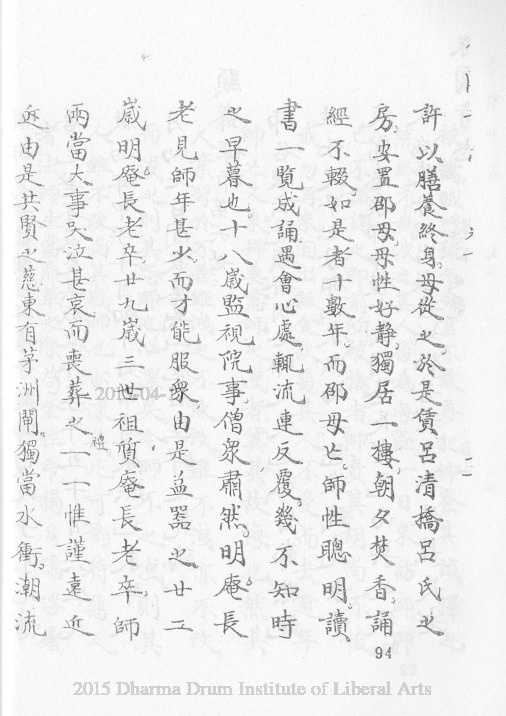 許以膳養終身母從之於是賃呂清橋呂氏之
房安置邵母母性好静獨居一樓朝夕焚香誦
經不輟如是者十數年而邵母亡師性聰明讀
書一覧成誦遇會心處輒流連反覆幾不知時
之早暮也十八歲監視院事僧衆肅然明庵長
老見師年甚少而才能服衆由是益器之廿三
歲明庵長老卒廿九歲三世祖質庵長老卒師
兩當大事哭泣甚哀而喪葬之禮一一惟謹遠近
近由是共賢之慈東有茅洲閘獨當水衝潮流
94
2015 Dharma Drum Institute of Liberal Arts